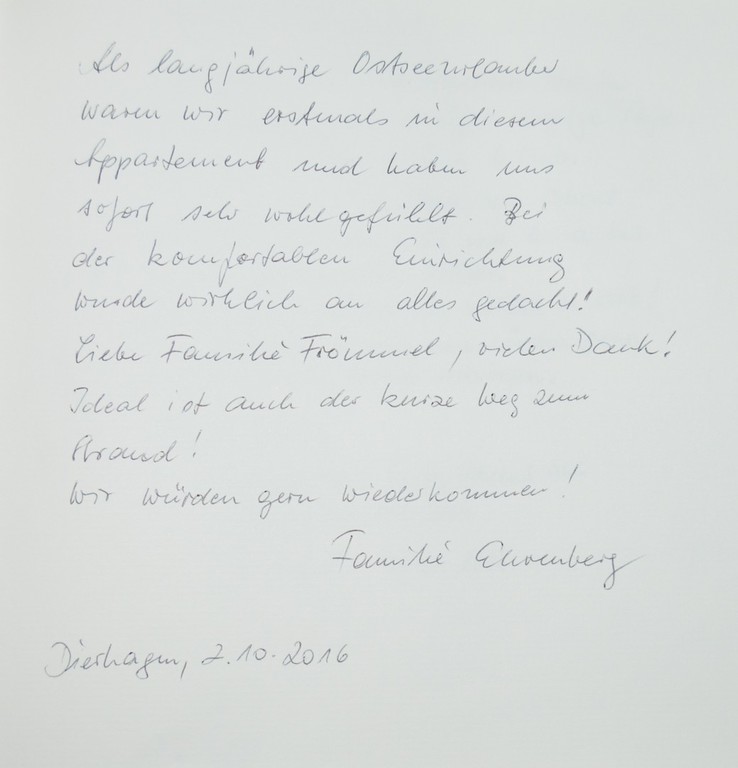 Als langjährige Ostseeurlauber
waren wir erstmals in diesem
Appartement und haben uns
sofort sehr wohlgefühlt. Bei
der komfortablen Einrichtung
wurde wirklich an alles gedacht!
Liebe Familie Frömmel, vielen Dank!
Ideal ist auch der kurze Weg zum
Strand!
Wir würden gern wiederkommen!
Familie Ehrenberg
Dierhagen, 2.10.2016